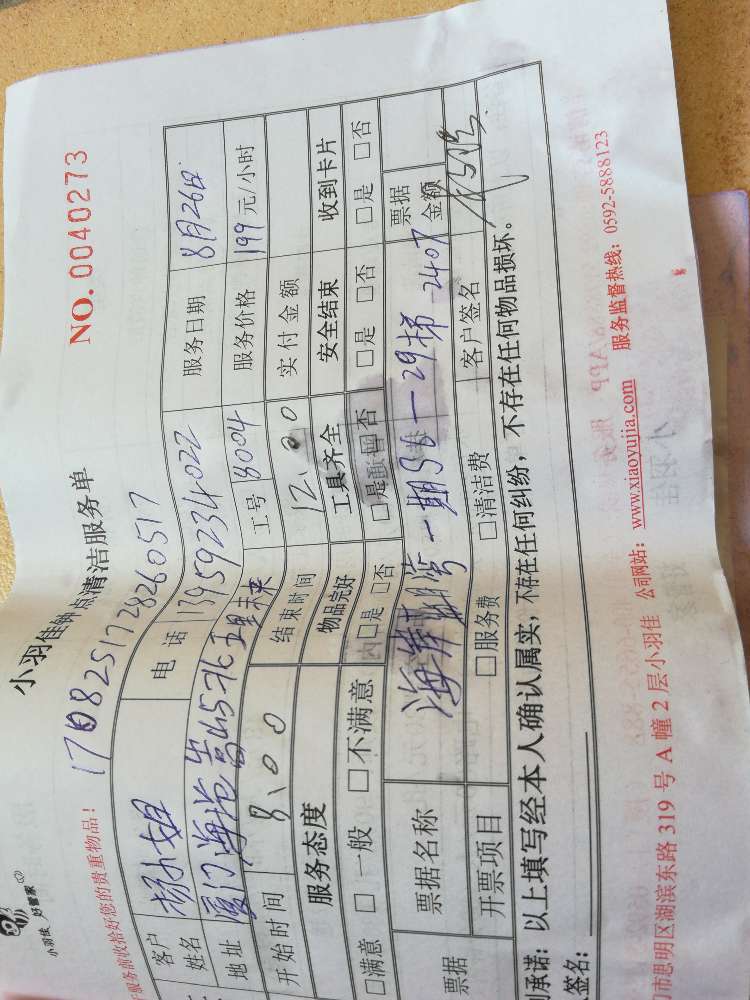 小羽佳 好管家
小羽佳钟点清洁服务单
NO. 0040273
服务前收拾好您的贵重物品！
客户姓名 杨小姐 电话 13959234022 服务日期 8月26日
地址 厦门海沧 工号 8004 服务价格 199 元/小时
开始时间 8:00 结束时间 12:00 实付金额
服务态度 物品完好 工具齐全 安全结束 收到卡片
□满意 □一般 □不满意 □是 □否 □是 □否 □是 □否 □是 □否
票据 票据名称 海岸 一期 29梯-2407 票据金额
开票项目 □服务费 □清洁费 客户签名
承诺：以上填写经本人确认属实，不存在任何纠纷，不存在任何物品损坏。
签名：
市思明区湖滨东路 319 号 A 幢 2 层小羽佳 公司网站：www.xiaoyujia.com 服务监督热线：0592-5888123